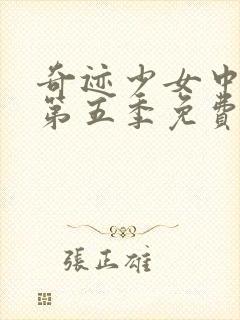 奇迹少女中
第五季免費
張正雄